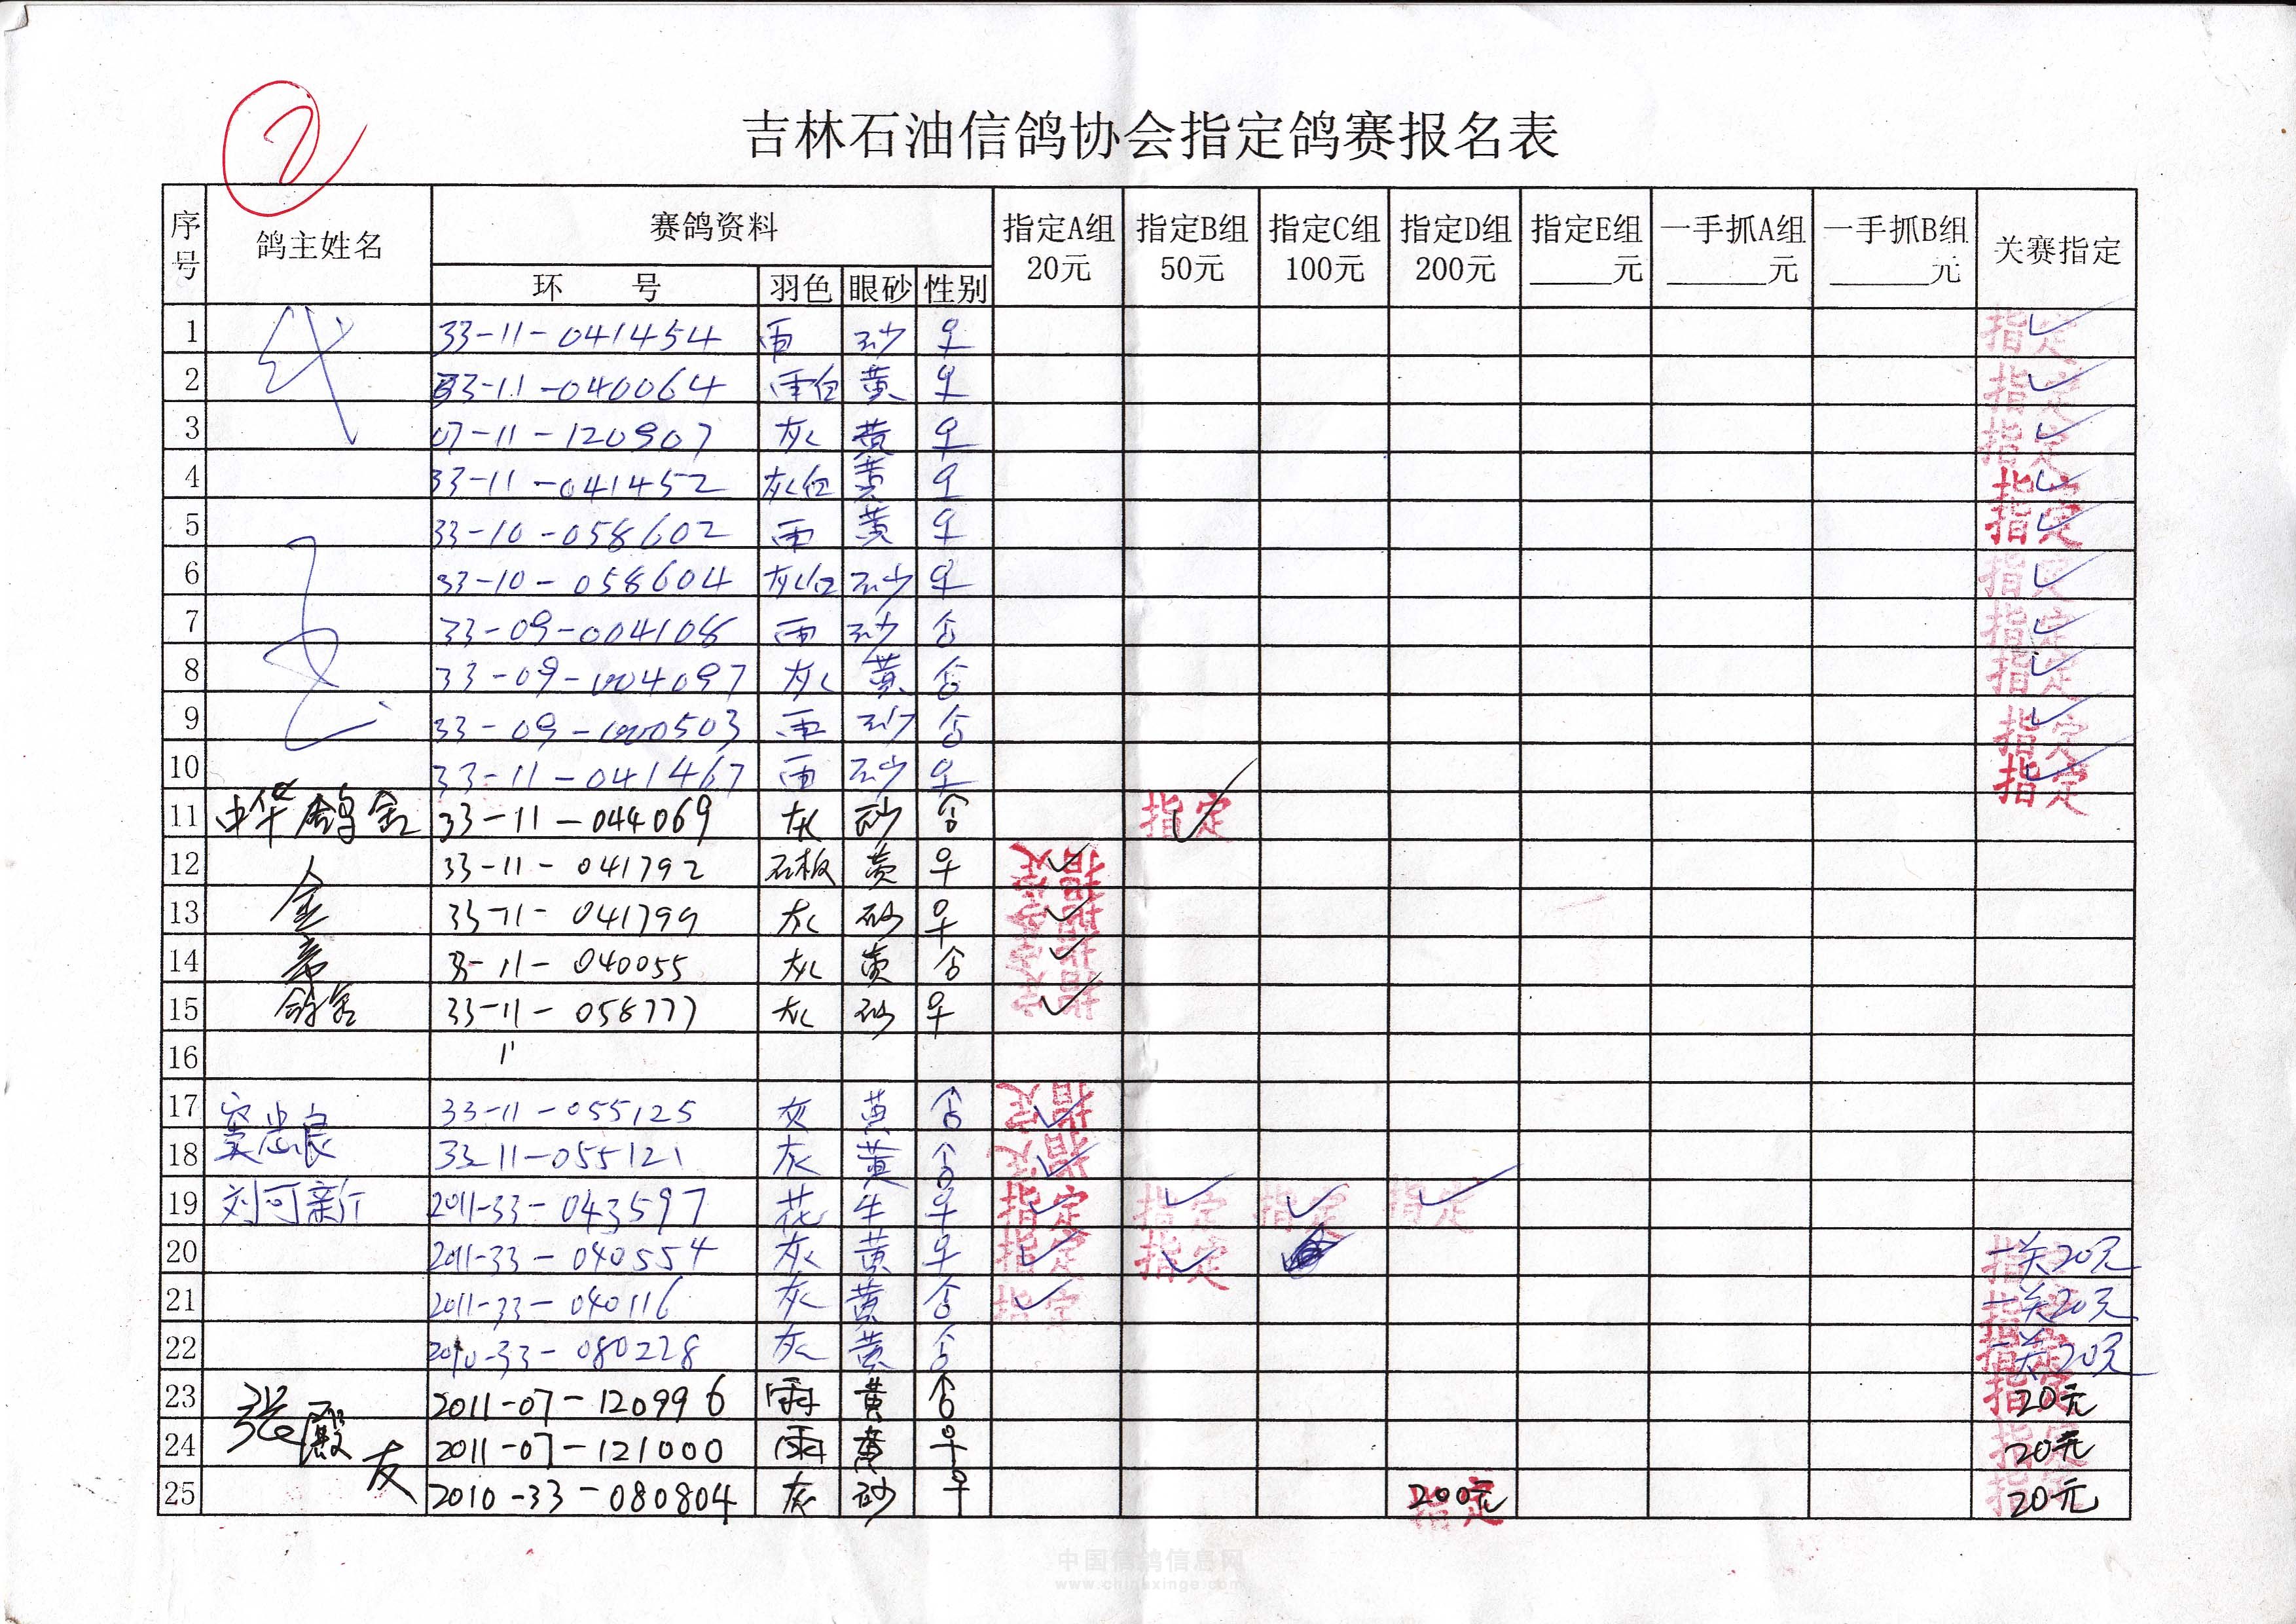 ②
吉林石油信鸽协会指定鸽赛报名表
序号 鸽主姓名 赛鸽资料 指定A组 20元 指定B组 50元 指定C组 100元 指定D组 200元 指定E组 ____元 一手抓A组 ____元 一手抓B组 ____元 关赛指定
环 号 羽色 眼砂 性别
1 33-11-041454 雨 砂 ♀ 指定 ✓
2 33-11-040064 雨白 黄 ♀ 指定 ✓
3 07-11-120907 灰 黄 ♀ 指定 ✓
4 33-11-041452 灰白 黄 ♀ 指定 ✓
5 33-10-058602 雨 黄 ♀ 指定 ✓
6 33-10-058604 灰白 砂 ♀ 指定 ✓
7 33-09-004108 雨 砂 合 指定 ✓
8 33-09-004097 灰 黄 合 指定 ✓
9 33-09-000503 雨 砂 合 指定 ✓
10 33-11-041467 雨 砂 ♀ 指定 ✓
11 中华鸽舍 33-11-044069 灰 砂 合 指定 ✓
12 金 33-11-041792 石板 黄 ♀ 指定 ✓
13 33-11-041799 灰 砂 ♀ 指定 ✓
14 33-11-040055 灰 黄 合 指定 ✓
15 鸽舍 33-11-058777 灰 砂 ♀ 指定 ✓
16
17 窦忠良 33-11-055125 灰 黄 合 指定 ✓
18 33-11-055121 灰 黄 合 指定 ✓
19 刘可新 2011-33-043597 花 牛 ♀ 指定 ✓ 指定 ✓ 指定 ✓ 指定 ✓
20 2011-33-040554 灰 黄 ♀ 指定 ✓ 指定 ✓ 指定 一关20元
21 2011-33-040116 灰 黄 合 指定 ✓ 指定 一关20元
22 2010-33-080228 灰 黄 合 指定 一关20元
23 张殿友 2011-07-120996 雨 黄 合 指定 20元
24 2011-07-121000 雨 黄 ♀ 指定 20元
25 2010-33-080804 灰 砂 ♀ 指定 200元 指定 20元
中国信鸽信息网
www.chinaxinge.com